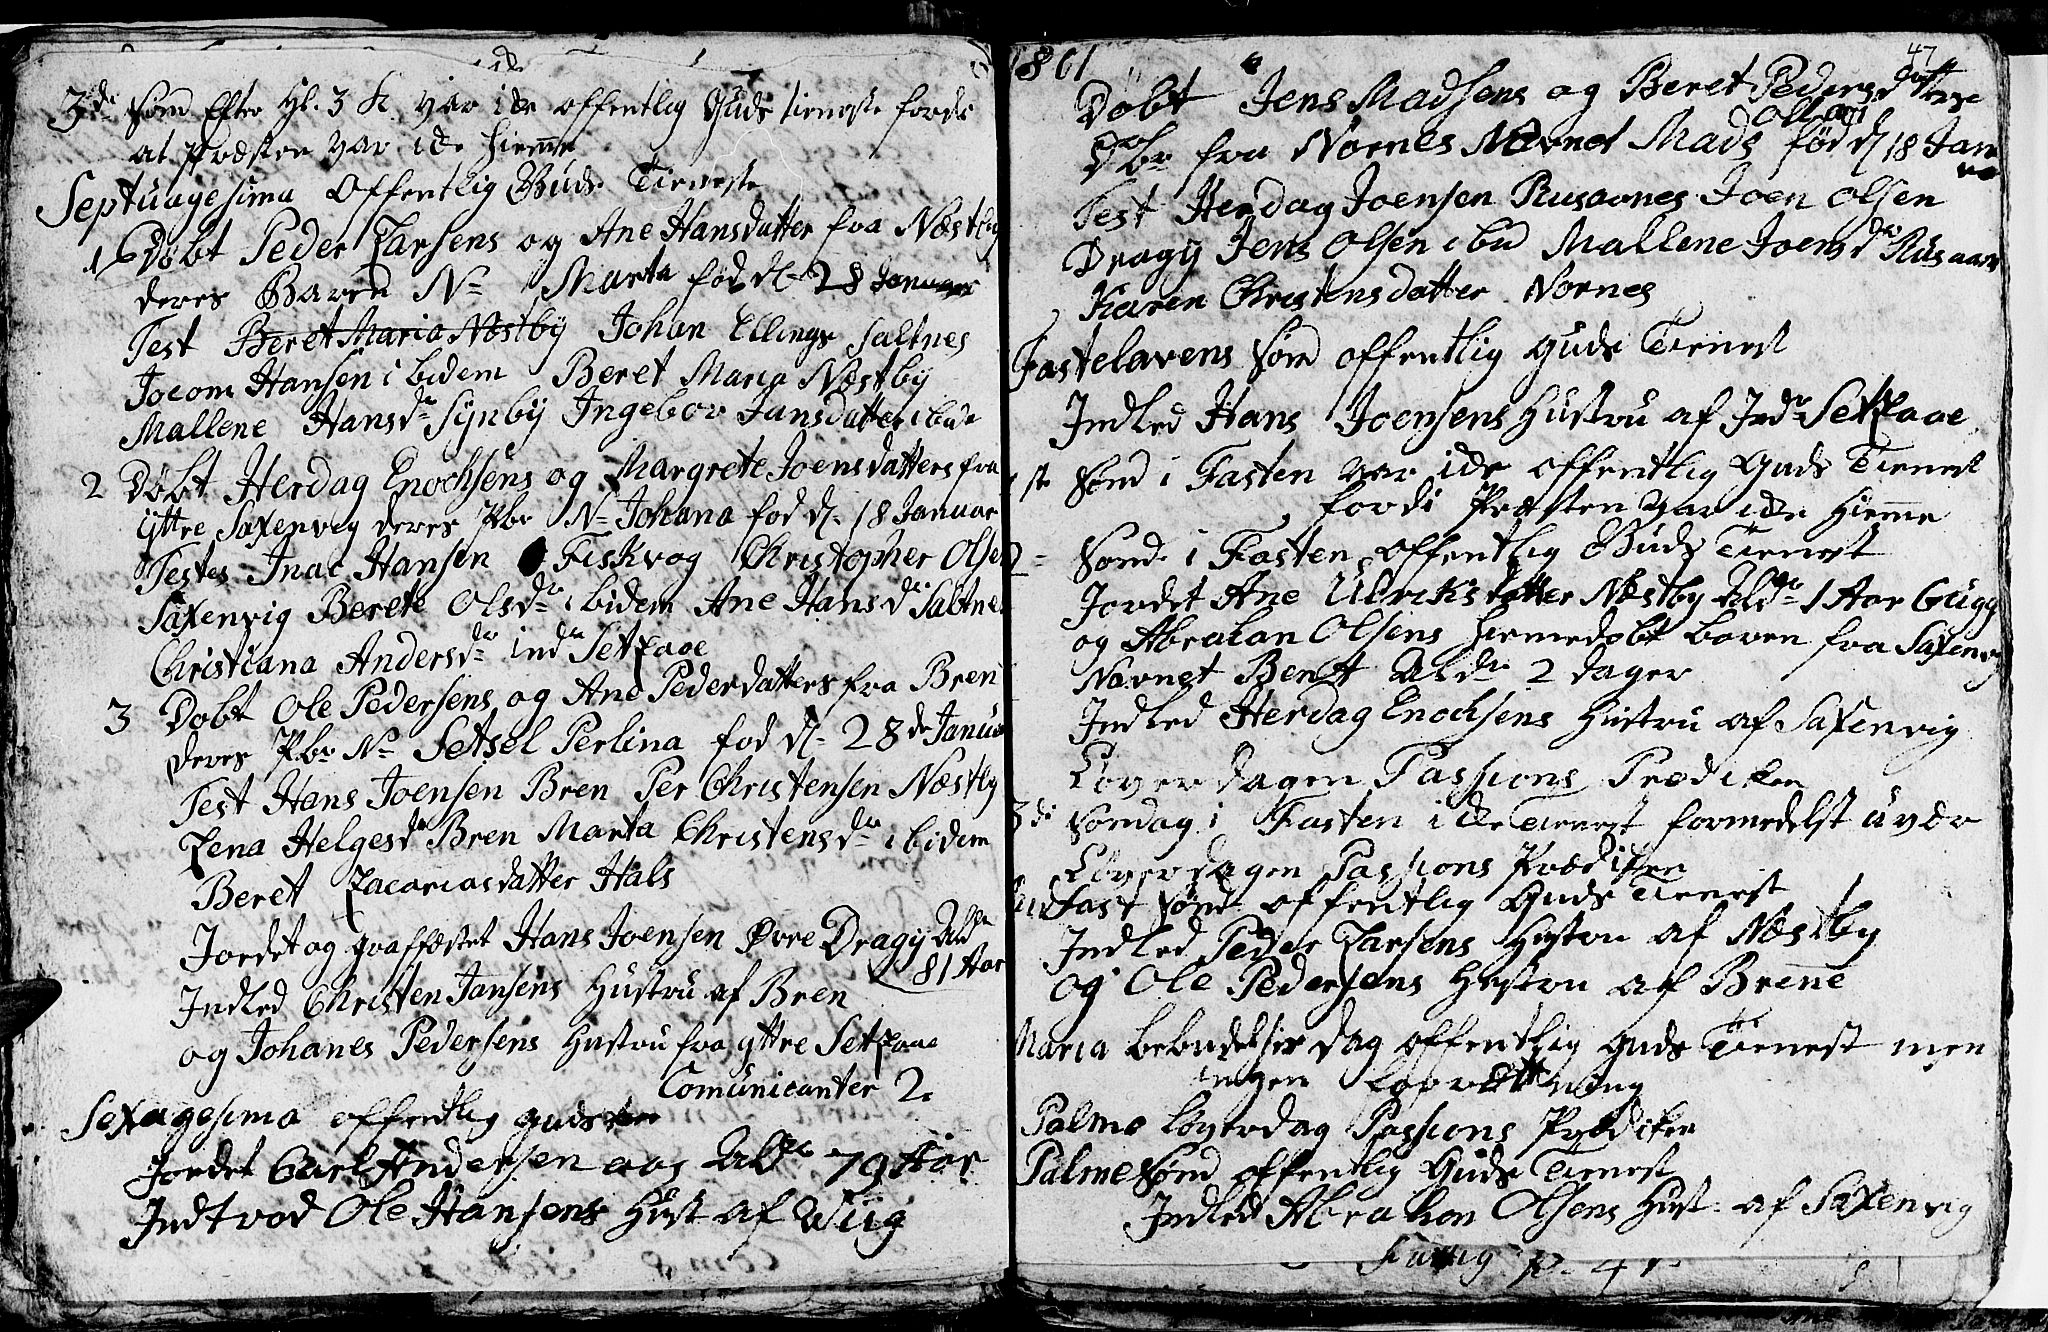 3de Sønd Efter Hl. 3 K. var ide offentlig Guds tieneste fordi
at Præsten var ide hiemme
Septuagesima offentlig Guds Tieneste
1 Døbt Peder Larsens og Ane Hansdatter fra Næstby
deres Baren N= Marta fød d= 28 Januar
Test Beret Maria Næstby Johan Ellings Saltnes
Jocom Hansen ibidem Beret Maria Næstby
Mallene Hansdr Synby Ingebor Jansdatter ibid
2 Døbt Herdag Enochsens og Margrete Joensdatters fra
yttre Saxenvig deres Pbr N= Johana fød d= 18 Januar
Testes Inac Hansen Fiskvog Christopher Olsen
Saxenvig Berete Olsdr ibidem Ane Hansdr Saltnes
Christiana Andersdr indr Setzaae
3 Døbt Ole Pedersens og Ane Pederdatters fra Bren
deres Pbr Nr Setsel Perlina fød d= 28de Janua
Test Hans Joensen Bren Per Christensen Næstby
Zena Helgesdr Bren Marta Christensdr ibidem
Beret Zacariasdatter Hals
Jordet og graffæstet Hans Joensen Øvre Dragy Aldr
81 Aar
Indled Christen Jansens Hustru af Bren
og Johanes Pedersens Hustru fra yttre Setzaae
Comunicanter 2.
Sexagesima offentlig guds
Jordet Carl Andersen aas Aldr 79 Aar
Indtrod Ole Hansens Hust af Wiig
1801
47
Døbt Jens Madsens og Beret Pedersdatter
Pbr fra Nornes Navnet Mads fød d 18 Janu
Test Herdag Joensen Rusaanes Joen Olsen
Dragy Jens Olsen ibid Mallene Joensdr Rusaan
Karen Christensdatter Nornes
Fastelavens Sønd offentlig guds Tienest
Indled Hans Joensens Hustru af Indr Setzaae
1ste Sønd i Fasten var ide offentlig Guds Tienest
fordi Præsten var ide hiemme
2= Sønd i Fasten offentlig Guds Tienest
Jordet Ane Ulriksdatter Næstby Aldr 1 Aar
og Abrahan Olsens hiemedøbt baren fra Saxenvig
Navnet Bent Aldr 2 dager
Indled Herdag Enochsens Hustru af Saxenvig
Løverdagen Passions Prædiken
3de Søndag i Fasten ide Tienest formedelst uvær
Løverdagen Passions Prædiken
Midfast Sønd offentlig Guds Tienest
Indled Peder Larsens Hustru af Næstby
og Ole Pedersens Hustru af Brene
Maria bebudelses dag offentlig guds Tienest men
ingen
Palme løverdag Passions Prædiken
Palme Sønd offentlig Guds Tienest
Indled Abrahan Olsens Hust: af Saxenvig